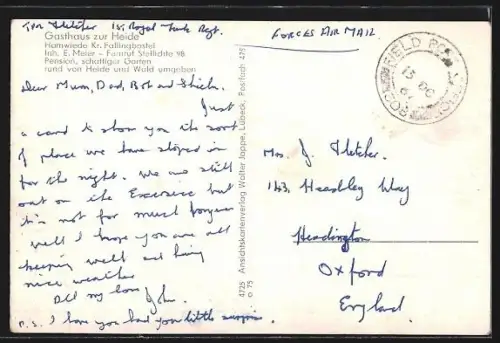 Tpr Fletcher 1st Royal Tank Regt.
FORCES AIR MAIL
Gasthaus zur Heide
Hamwiede Kr. Fallingbostel
Inh. E. Meier - Fernruf Stellichte 98
Pension, schattiger Garten
rund von Heide und Wald umgeben
Dear Mum, Dad, Bob and
Just
a card to show you the sort
of place we have stoped in
for the night. We are still
out on the Exercise but
it's not for much longer
well I hope you are all
keeping well and having
nice weather
All my love
John.
P.S. I hope you had you little surprise.
4725 Ansichtskartenverlag Walter Jappe, Lübeck, Postfach 475
o 75
FIELD POST OFFICE
Mrs J Fletcher.
143 Headley Way
Headington
Oxford
England.